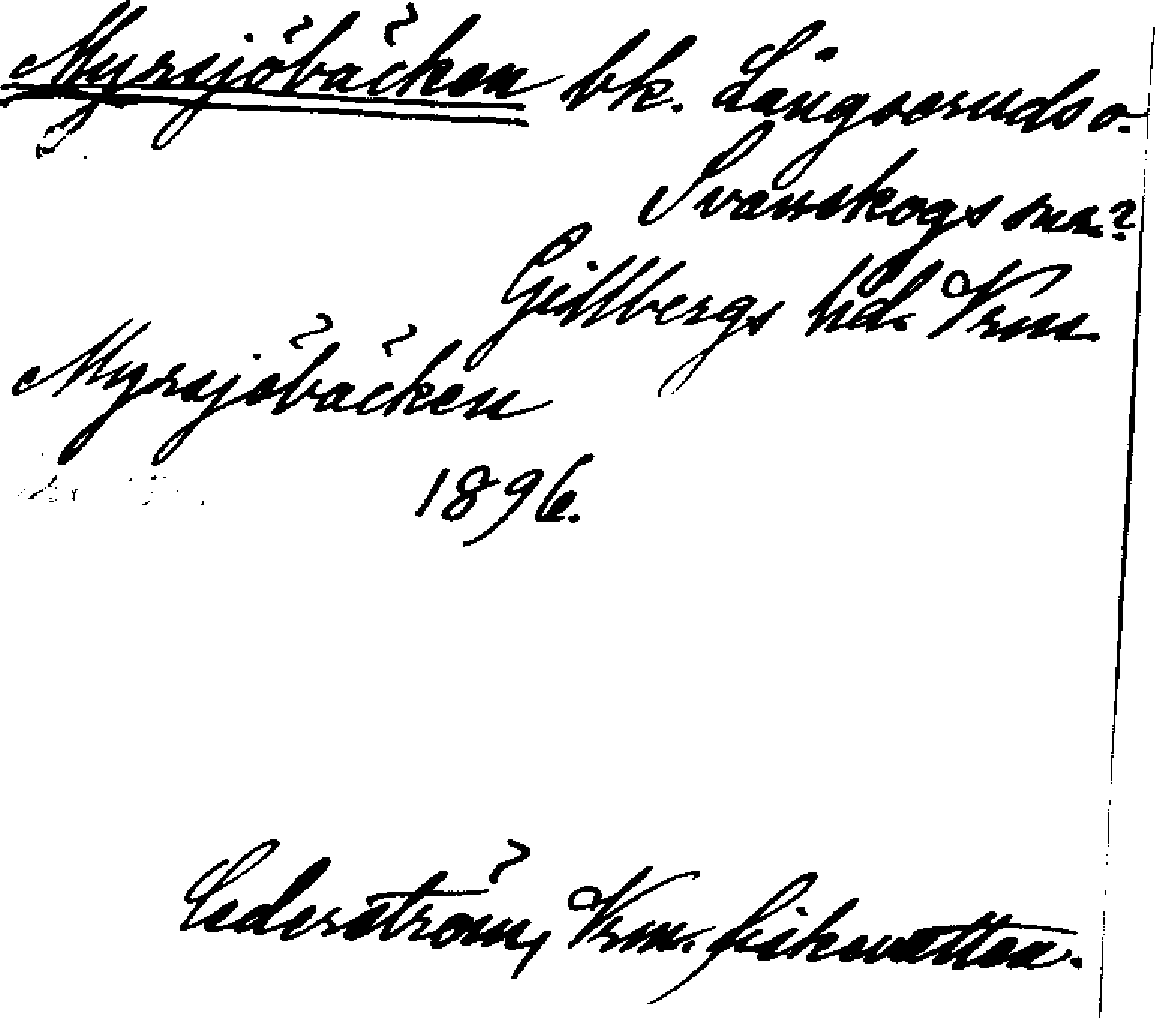 Myrsjöbäcken bk. Långseruds o.
Svanskogs snr?
Gillbergs hd. Vrm.
Myrsjöbäcken
1896.
Cederström, Vrm. fiskevatten.